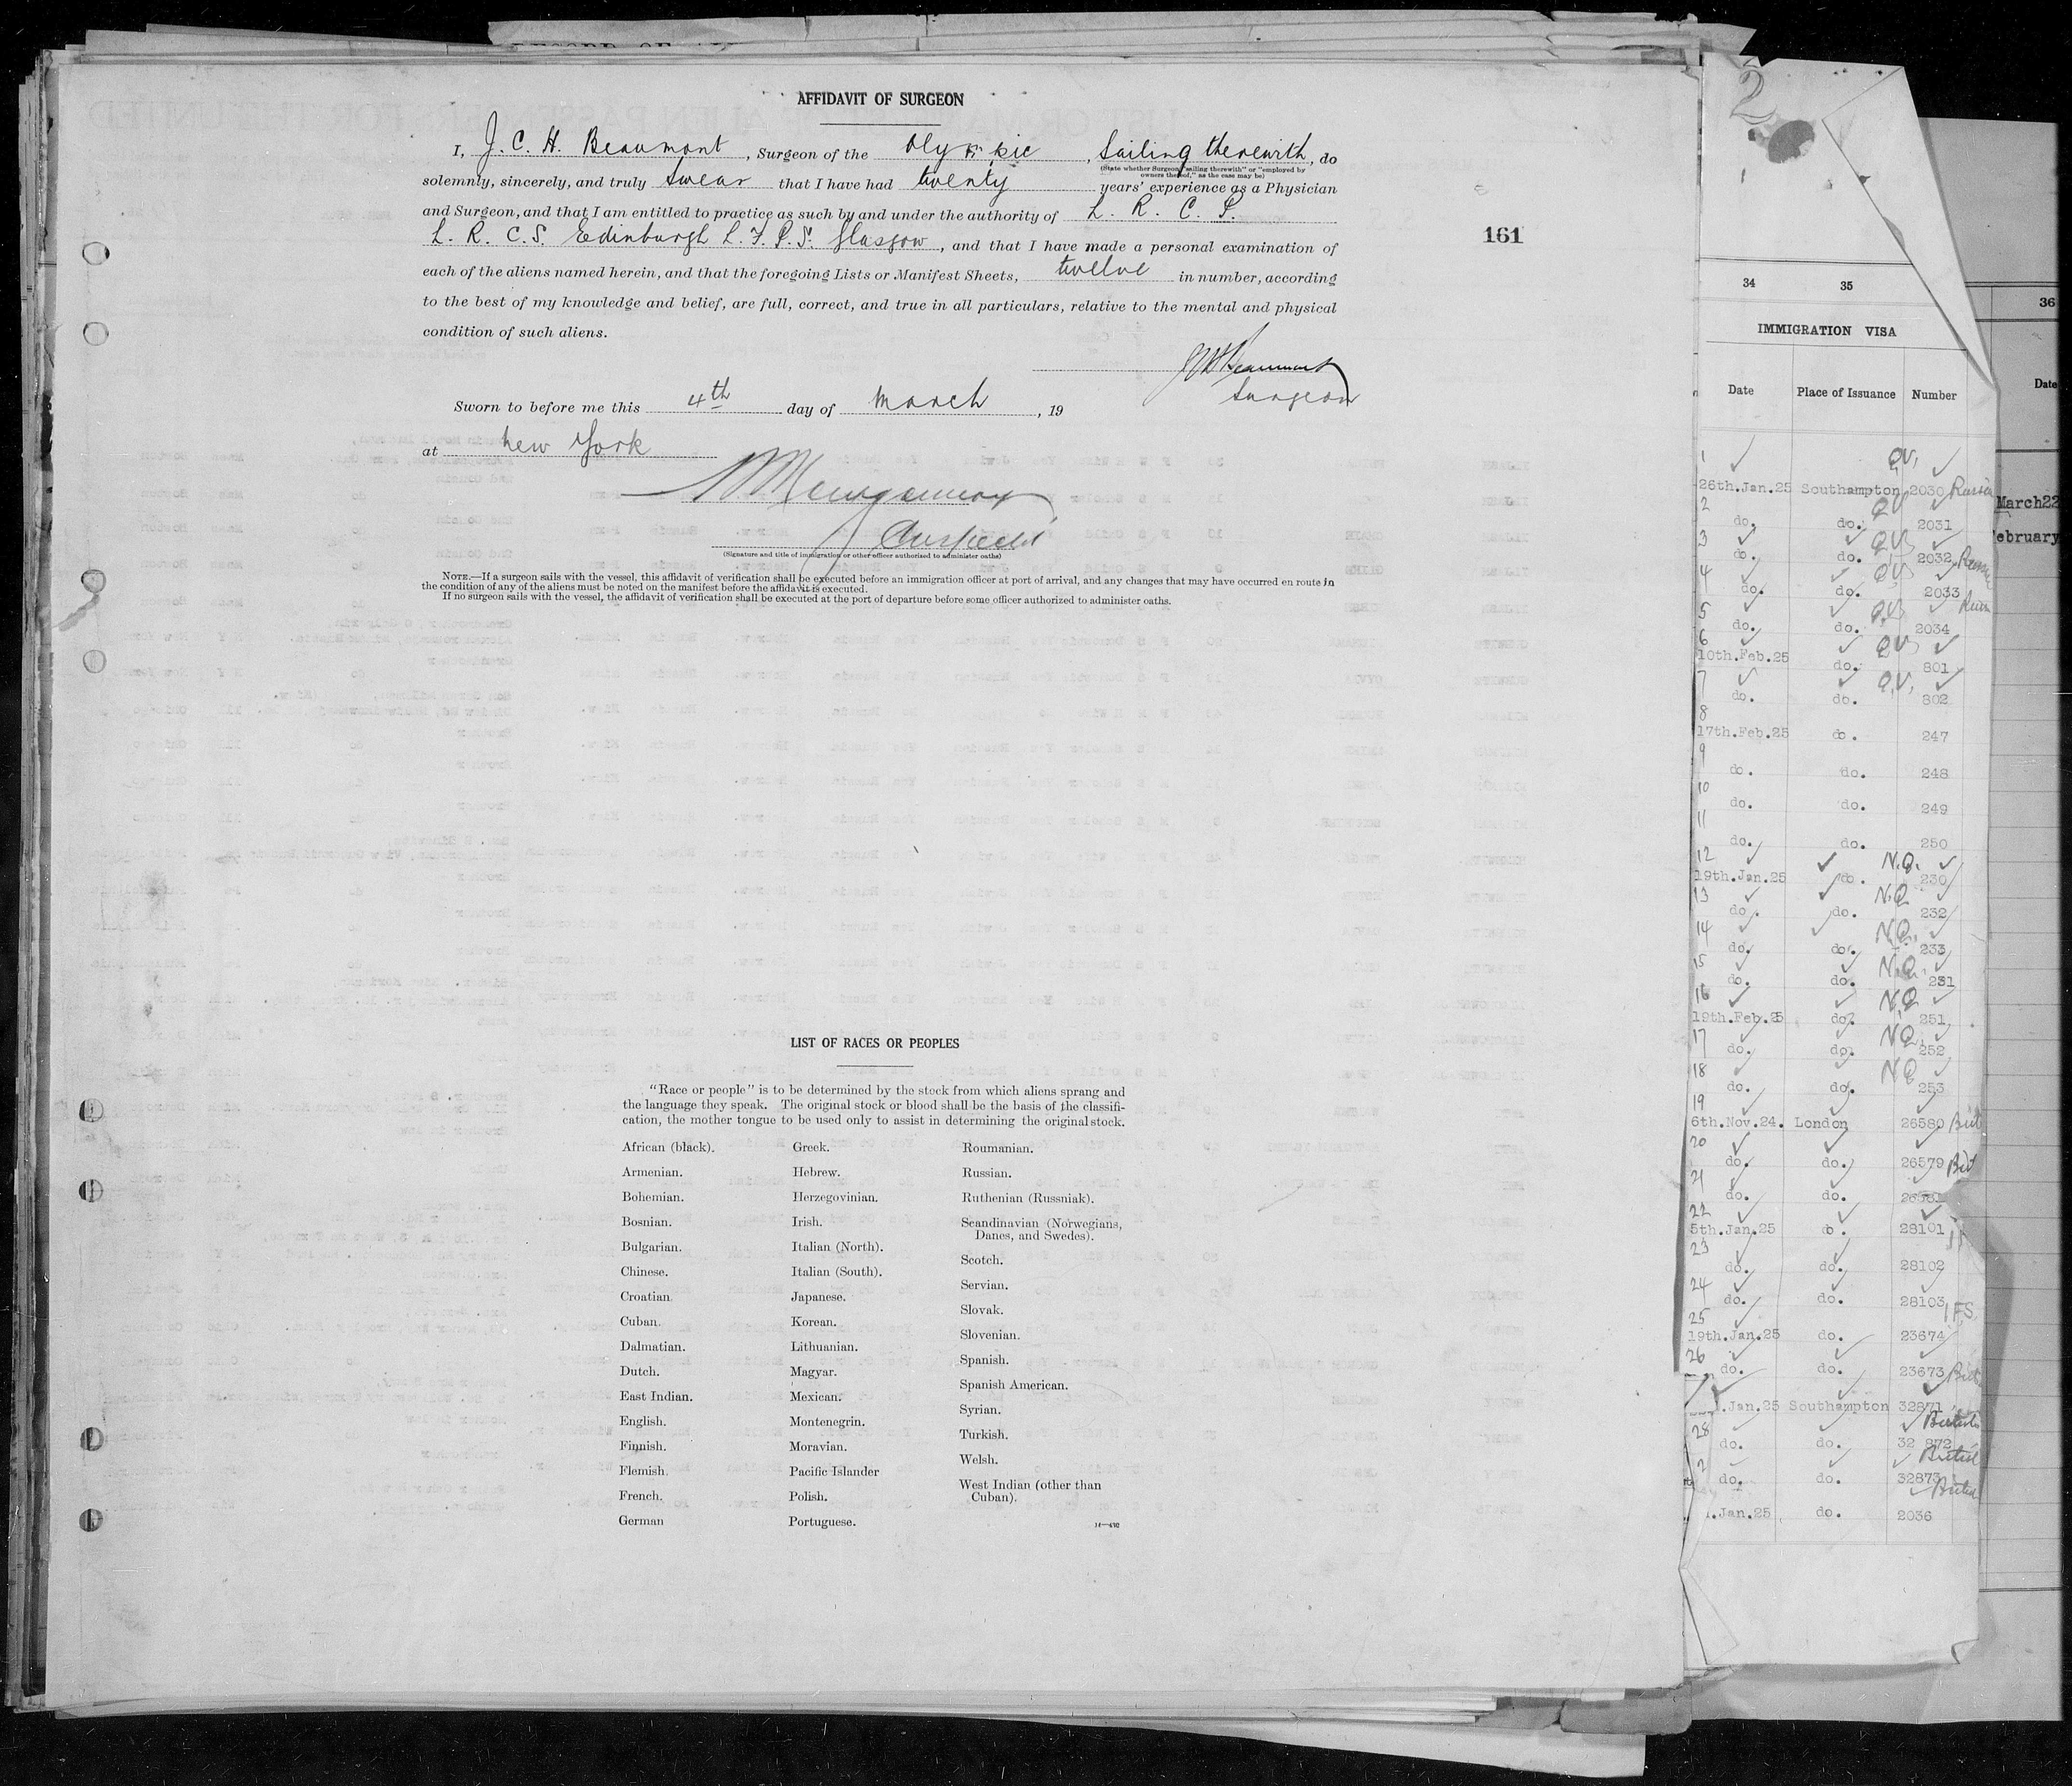 AFFIDAVIT OF SURGEON
I, J. C. H. Beaumont, Surgeon of the Olympic, Sailing therewith, do
(State whether Surgeon "sailing therewith" or "employed by
owners thereof," as the case may be)
solemnly, sincerely, and truly swear that I have had twenty years' experience as a Physician
and Surgeon, and that I am entitled to practice as such by and under the authority of L. R. C. P.
L. R. C. S. Edinburgh L. F. P. S. Glasgow, and that I have made a personal examination of
each of the aliens named herein, and that the foregoing Lists or Manifest Sheets, twelve in number, according
to the best of my knowledge and belief, are full, correct, and true in all particulars, relative to the mental and physical
condition of such aliens.
JCH Beaumont
Surgeon
Sworn to before me this 4th day of March, 19
at New York
(Signature and title of immigration or other officer authorized to administer oaths)
NOTE.—If a surgeon sails with the vessel, this affidavit of verification shall be executed before an immigration officer at port of arrival, and any changes that may have occurred en route in
the condition of any of the aliens must be noted on the manifest before the affidavit is executed.
If no surgeon sails with the vessel, the affidavit of verification shall be executed at the port of departure before some officer authorized to administer oaths.
161
LIST OF RACES OR PEOPLES
"Race or people" is to be determined by the stock from which aliens sprang and
the language they speak. The original stock or blood shall be the basis of the classifi-
cation, the mother tongue to be used only to assist in determining the original stock.
African (black).
Armenian.
Bohemian.
Bosnian.
Bulgarian.
Chinese.
Croatian.
Cuban.
Dalmatian.
Dutch.
East Indian.
English.
Finnish.
Flemish.
French.
German
Greek.
Hebrew.
Herzegovinian.
Irish.
Italian (North).
Italian (South).
Japanese.
Korean.
Lithuanian.
Magyar.
Mexican.
Montenegrin.
Moravian.
Pacific Islander
Polish.
Portuguese.
Roumanian.
Russian.
Ruthenian (Russniak).
Scandinavian (Norwegians,
Danes, and Swedes).
Scotch.
Servian.
Slovak.
Slovenian.
Spanish.
Spanish American.
Syrian.
Turkish.
Welsh.
West Indian (other than
Cuban).
2
34 35
IMMIGRATION VISA
Date Place of Issuance Number
1 QV.
26th.Jan.25 Southampton 2030 Russia
2 QV
do. do. 2031
3 QV
do. do. 2032
4 QV
do. do. 2033
5 QV
do. do. 2034
6 QV
10th.Feb.25 do. 801
7 Q.V.
do. do. 802
8
17th.Feb.25 do. 247
9
do. do. 248
10
do. do. 249
11
do. do. 250
12 N.Q.
19th.Jan.25 do. 230
13 N.Q
do. do. 232
14 N.Q.
do. do. 233
15 N.Q.
do. do. 231
16 N.Q
19th.Feb.25 do. 251
17 N.Q.
do. do. 252
18 N.Q
do. do. 253
19
6th.Nov.24. London 26580 Brit
20
do. do. 26579 Brit
21
do. do.
22
5th.Jan.25 do. 28101
23
do. do. 28102
24
do. do. 28103
25
19th.Jan.25 do. 23674
26
do. do. 23673 Brit
.Jan.25 Southampton 32871
28 British
do. do. 32 872
British
do. do. 32873
British
.Jan.25 do. 2036
36
Date
March22
ebruary